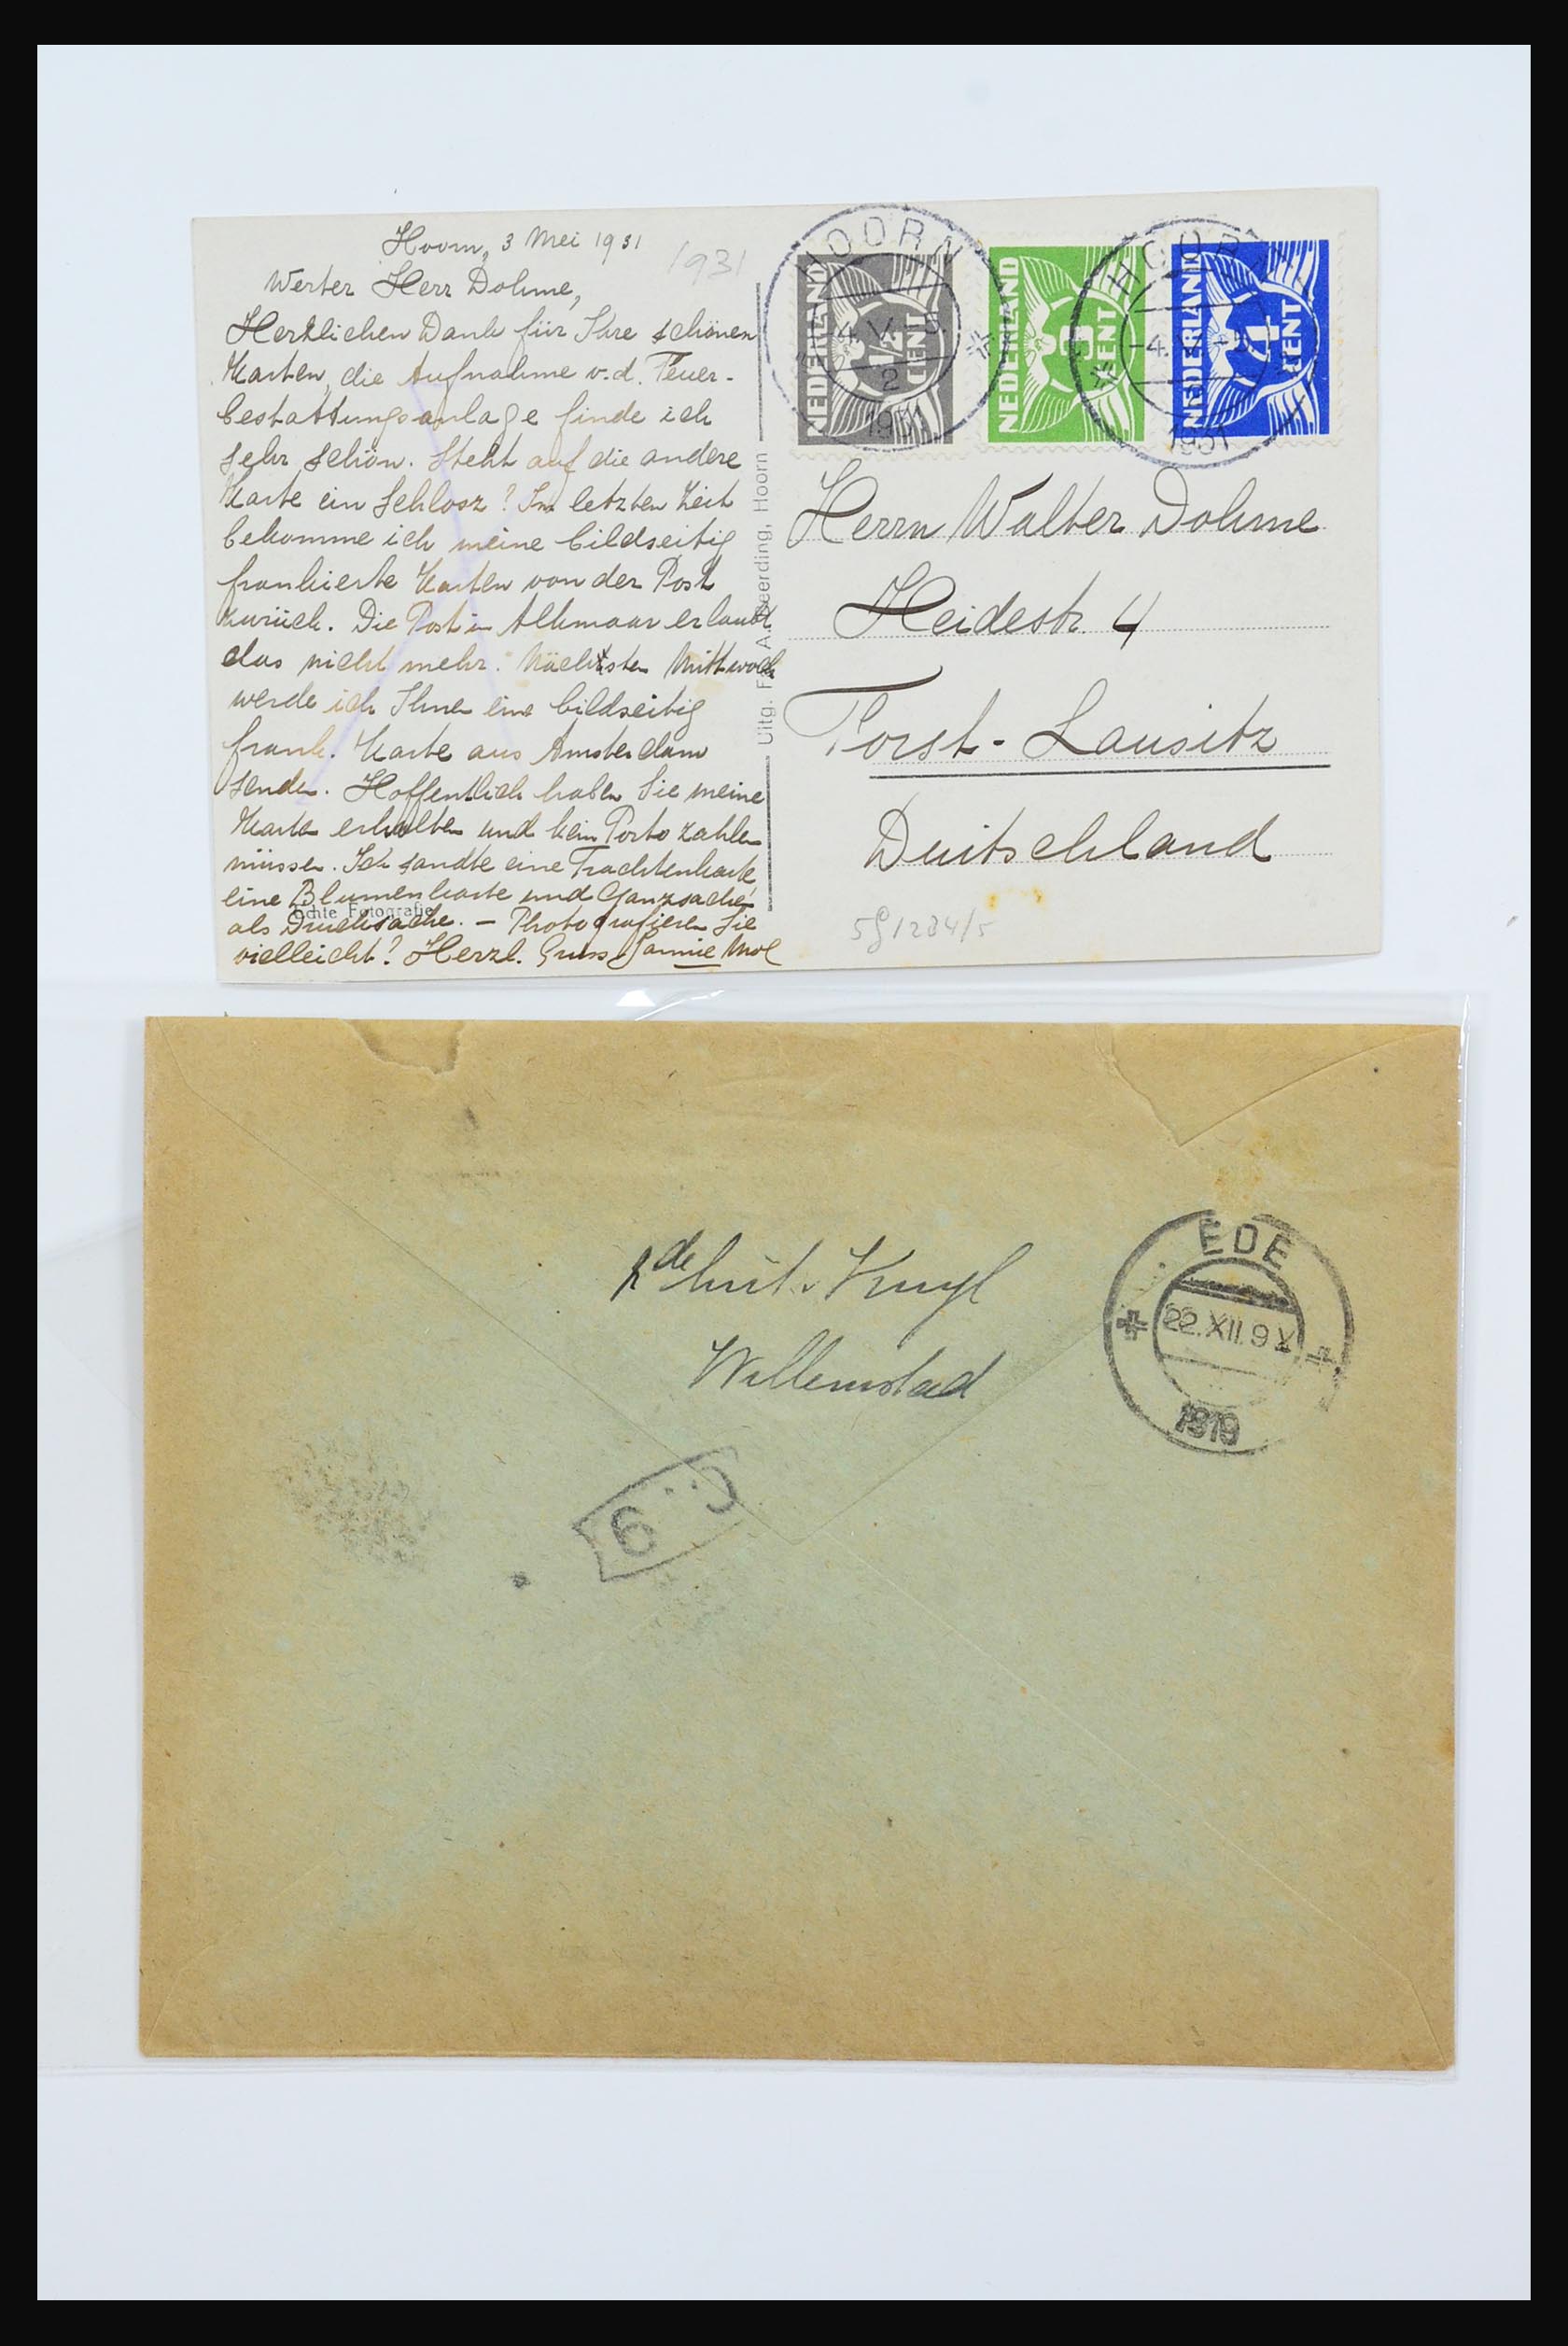 Hoorn, 3 Mei 1931
1931
Werter Herr Dohme,
Herzlichen Dank für Ihre schönen
Karten, die Aufnahme v.d. Feuer-
bestattungsanlage finde ich
sehr schön. Steht auf die andere
Karte ein Schlosz? Im letzten Zeit
bekomme ich meine bildseitig
frankierte Karten von der Post
zurück. Die Post in Alkmaar erlaubt
das nicht mehr. Nächsten Mittwoch
werde ich Ihnen eine bildseitig
frank. Karte aus Amsterdam
senden. Hoffentlich haben Sie meine
Karten erhalten und kein Porto zahlen
müssen. Ich sandte eine Trachtenkarte,
eine Blumenkarte und Ganzsache
als Drucksache. – Photografieren Sie
vielleicht? Herzl. Gruss Jannie Mol
Echte Fotografie
Uitg. Fa. A. Beerding, Hoorn
HOORN
4.V.
2
1931
NEDERLAND
½
CENT
NEDERLAND
3
CENT
HOORN
4.
1931
NEDERLAND
4
CENT
Herrn Walter Dohme
Heidestr. 4
Forst - Lausitz
Duitschland
5g1284/5
Kuyl
Willemstad
EDE
22.XII.9
1919
6